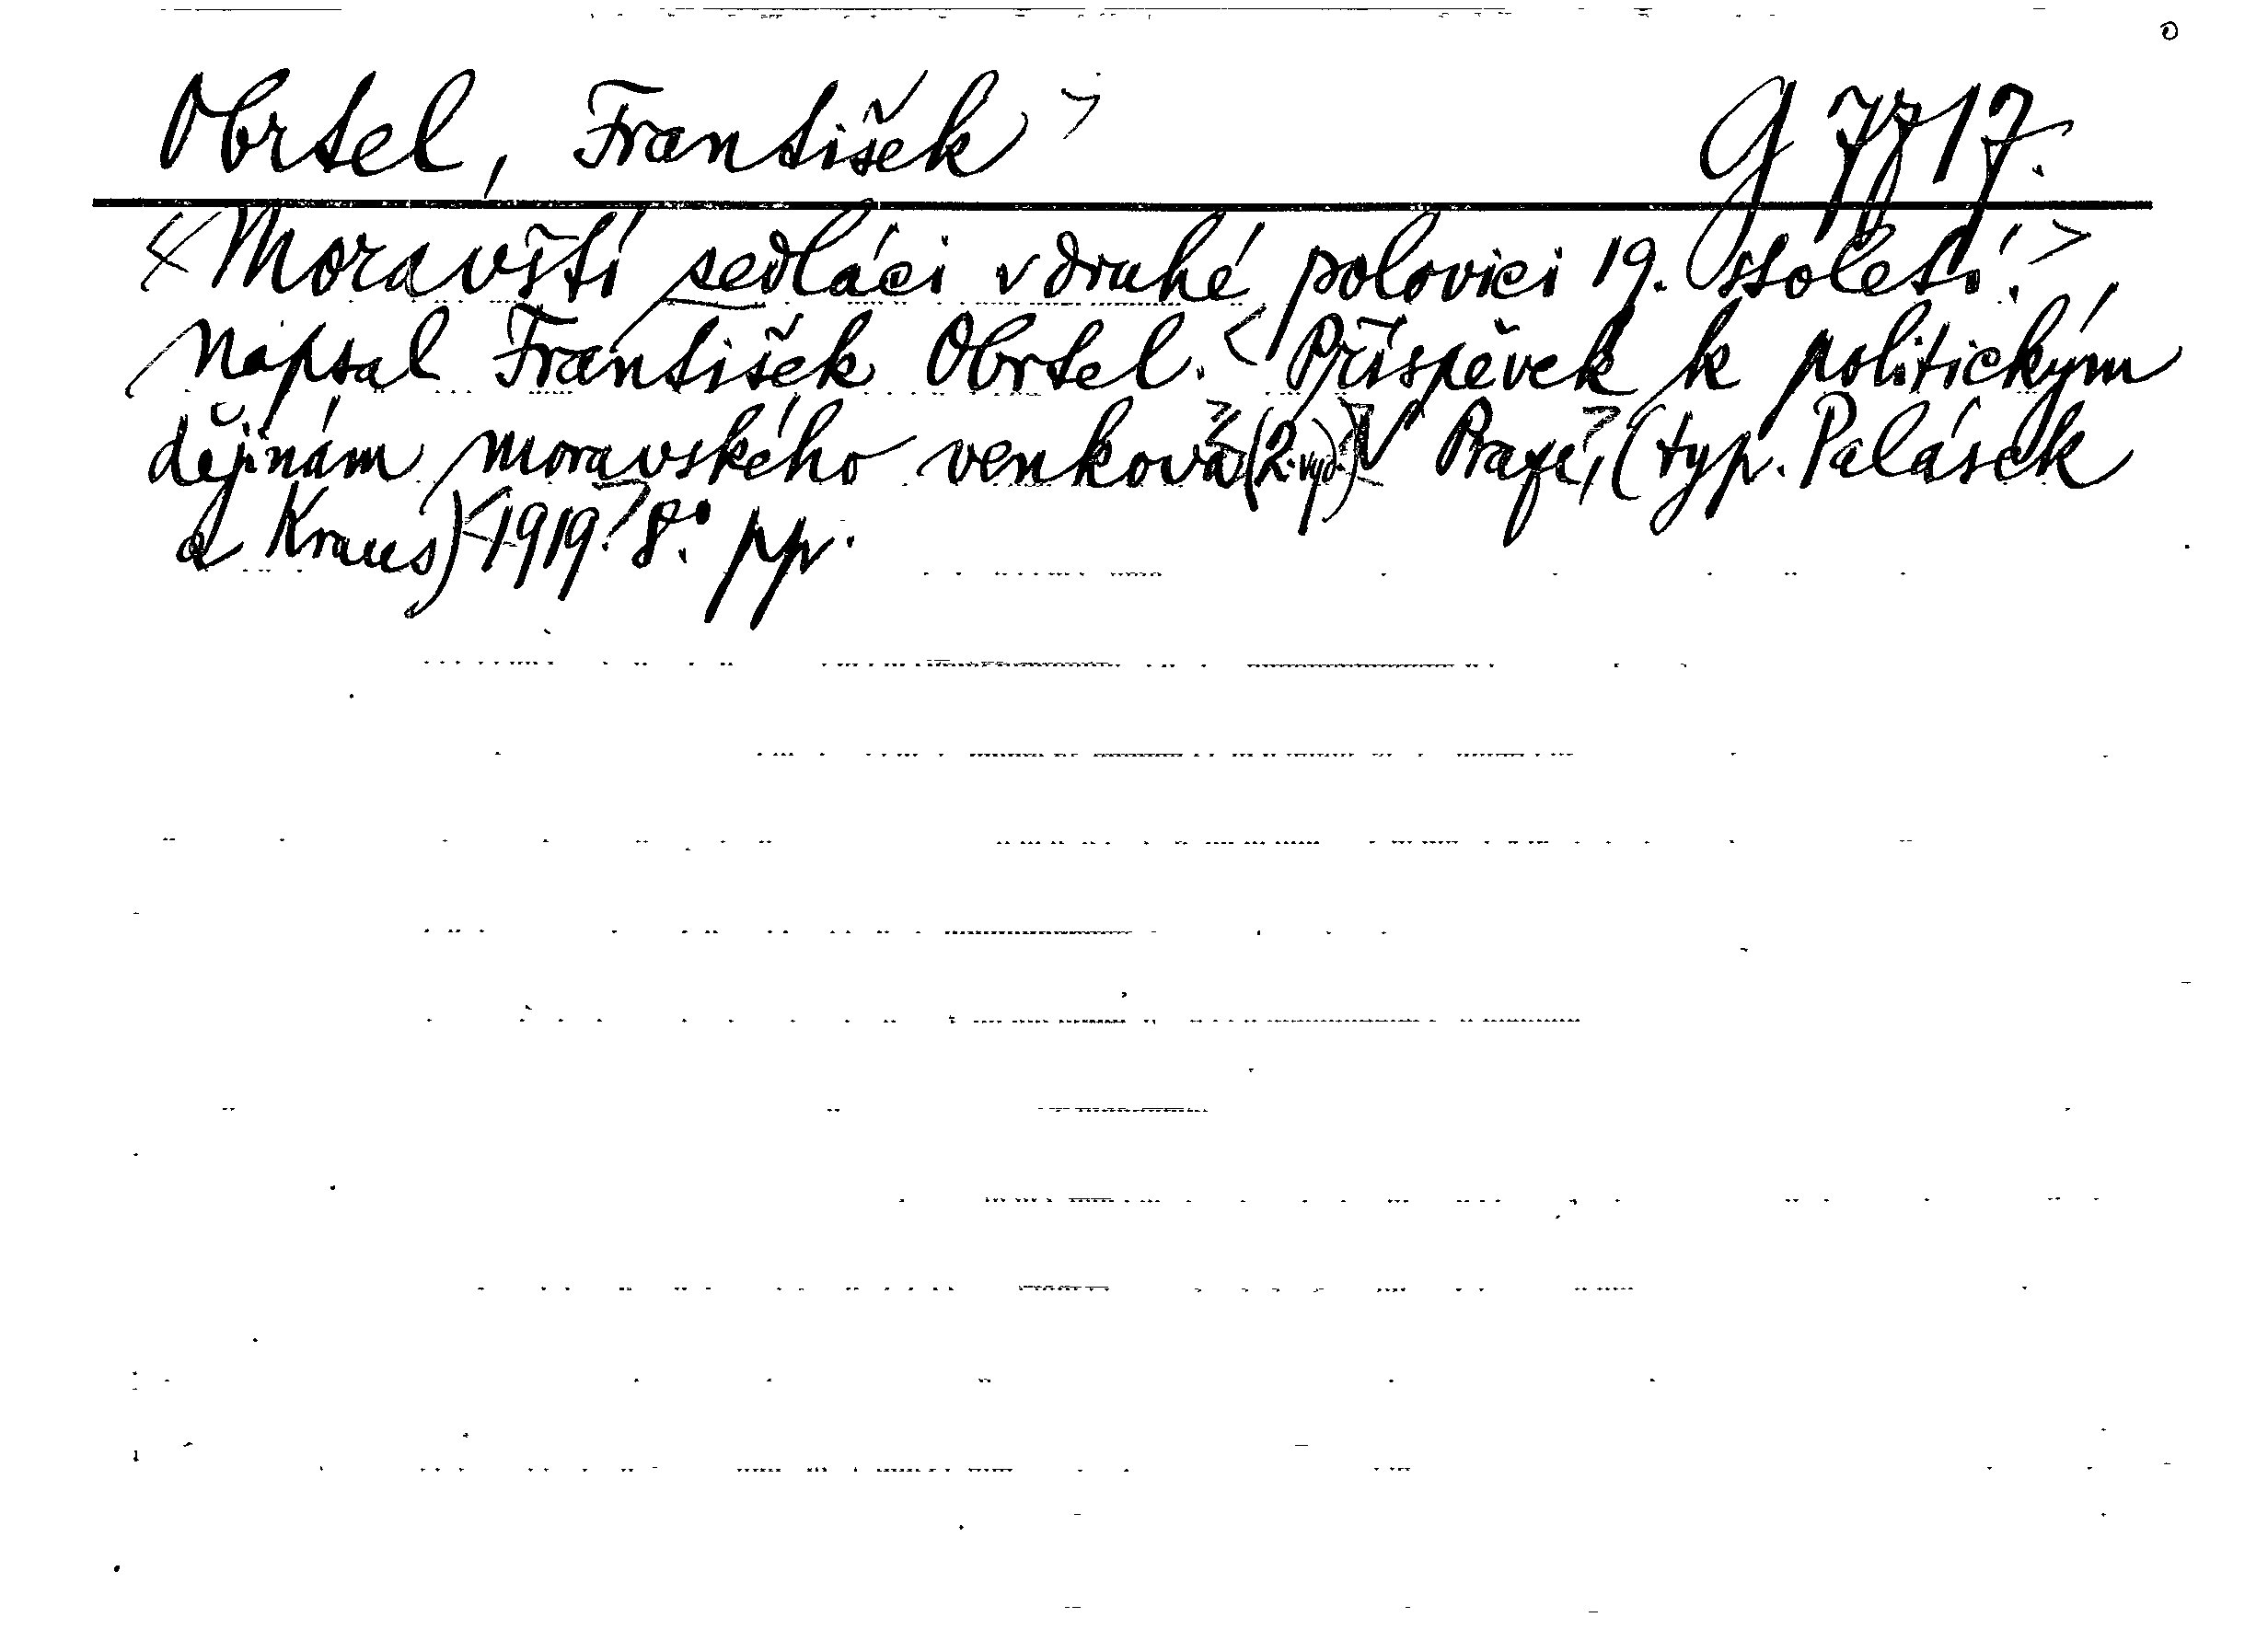 Obrtel, František > G 7717.
< Moravští sedláci v druhé polovici 19. století. >
Napsal František Obrtel. < Příspěvek k politickým
dějinám moravského venkova > (2. vyd.) < V Praze >, (typ. Palásek
a Kraus) < 1919. > 8.° pp.